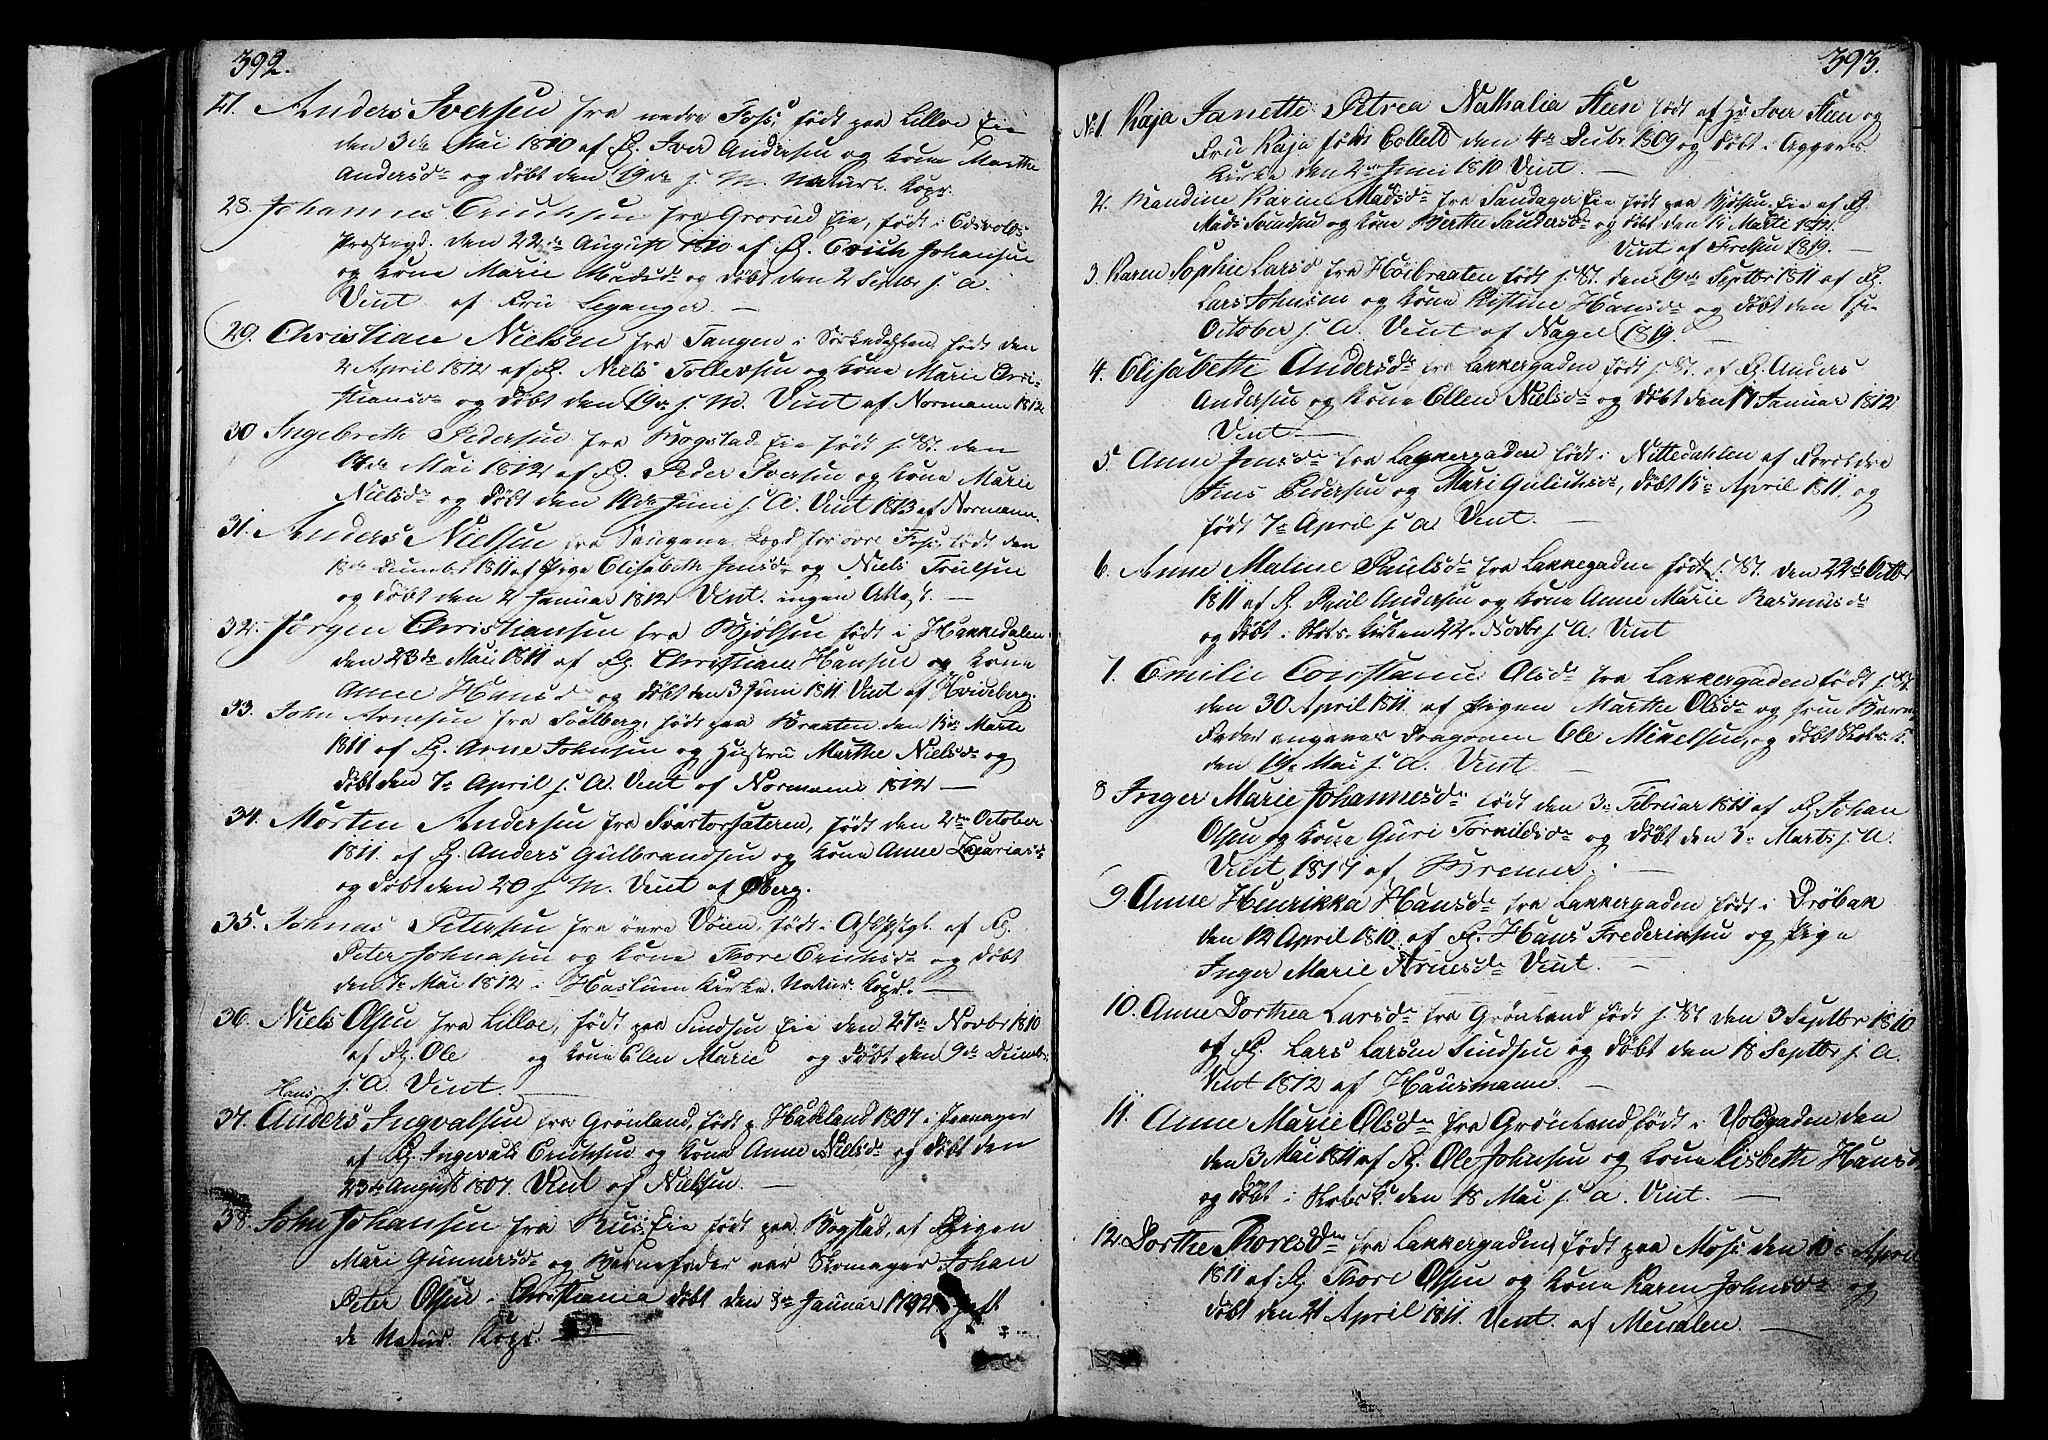 392.
27. Anders Iversen fra nedre Foss, født paa Lilloe Eie
den 3die Mai 1810 af F. Iver Andersen og Kone Marthe
Andersdr og døbt den 19de s. M. Naturl. Kopr.
28. Johannes Erichsen fra Grorud Eie, født i Edsvolds
Præstegd. den 22de August 1810 af F. Erich Johansen
og Kone Marie Madsdr og døbt den 2 Septbr s. A.
Vint. af Fru Leganger. —
29. Christian Nielsen fra Tangen i Sørkedahlen født den
2 April 1812 af F. Niels Tollevsen og Kone Marie Chri-
stiansdr og døbt den 19de s. M. Vint af Normann 1812
30 Ingebreth Pedersen fra Bogstad Eie født s. St. den
17de Mai 1812 af F. Peder Iversen og Kone Marie
Nielsdr og døbt den Juni s. A. Vint 1813 af Normann.
31. Anders Nielsen fra Saugene Lagd for øvre Foss, født den
18de Decembr 1811 af Pige Elisabeth Jensdr og Niels Truelsen
og døbt den 2 Januar 1812 Vint. ingen Attest. —
32. Jørgen Christiansen fra Bjølsen født i Hakkedalen
den 23de Mai 1811 af F. Christian Hansen og Kone
Anne Hansd og døbt den 3 Juni 1811 Vint af Hvideberg.
33. John Arnesen fra Soelberg, født paa Braaten den 15de Marts
1811 af F. Arne Johnsen og Hustru Marthe Nielsdr og
døbt den 7de April s. A. Vint af Normann 1812 —
34. Morten Andersen fra Svartorsæteren, født den 2den October
1811. af F. Anders Gulbrandsen og Kone Anne Zacariasdr
og døbt den 20 s. M. Vint af Øberg.
35. Johnas Petersen fra øvre Vøien, født i Askspgl. af F.
Peter Johnasen og Kone Thore Erichsdr og døbt
den 7de Mai 1812 i Haslum Kirke. Natur. Kopr. —
36. Niels Olsen fra Lilloe, født paa Sindsen Eie den 27de Novbr 1810
af F. Ole og Kone Elen Marie og døbt den 9de Decmbr
s. A. Vint. —
Hans
37. Anders Ingvalsen fra Grønland, født p. Hadeland 1807 i Jevnager
af F. Ingevald Erichsen og Kone Anne Nielsdr og døbt den
23de August 1807. Vint af Nielsen. —
38. John Johansen fra Ruus Eie født paa Bogstad, af Pigen
Mari Gunnersdr og Barnefader var Skomager Johan
Peter Olsen i Christiania døbt den 8de Januar
de Natur. Kopr.
393.
No 1. Kaja Janette Petrea Nathalia Steen født af Hr Iver Steen og
Fru Kaja født Collett den 4de Decbr. 1809 og døbt i Aggers
Kirke den 2den Juni 1810 Vint. —
2. Randine Karine Madsdr fra Sandager Eie født paa Bjølsen Eie af F.
Mads Svendsen og Kone Berthe Sandersdr og døbt den 15 Marts 1812.
Vint af Frelsen 1819. —
3. Karen Sophie Larsd fra Høibraaten født s. St. den 19de Septbr 1811 af F.
Lars Johnsen og Kone Kistine Hansdr og døbt den 1ste
October s. A. Vint af Nagel 1819. —
4. Elisabethe Andersdr fra Lakkergaden født s. St. af F. Anders
Andersen og Kone Ellen Nielsdr og døbt den 17 Januar 1812
Vint —
5. Anne Jensdr fra Lakkergaden født i Nittedahlen af Forældre
Jens Pedersen og Mari Gulichsdr, døbt 15de April 1811, og
født 7de April s. A. Vint. —
6. Anne Maline Paulsdr fra Lakkegaden født s. St. den 22de Octbr
1811 af F. Paul Andersen og Kone Anne Marie Rasmusdr
og døbt i Slots Kirken 22de Novbr s. A. Vint
7. Emilie Constance Olsdr fra Lakkergaden født s. St.
den 30 April 1811. af Pigen Marthe Olsdr og som Barne
Fader angaves Dragonen Ole Mikelsen, og døbt Slots. K.
den 19de Mai s. A. Vint. —
8 Inger Marie Johannesdr født den 3de Februar 1811 af F. Johan
Olsen og Kone Guri Torkildsdr og døbt den 3de Marts s. A.
Vint 1817 af Bremer. —
9. Anne Henrikka Hansdr fra Lakkergaden født i Drøbak
den 12 April 1810. af F. Hans Frederiksen og Pige
Inger Marie Arnesdr Vint. —
10. Anne Dorthea Larsdr fra Grønland født s. St den 3 Septbr 1810
af F. Lars Larsen Sindsen og døbt den 18 Septbr s. A.
Vint 1812 af Hausmann. —
11. Anne Marie Olsdr fra Grønland født i Voldgaden den
den 3 Mai 1811 af F. Ole Johnsen og Kone Lisbeth Hansd
og døbt i Slots K. den 18 Mai s. A. Vint. —
12 Dorthe Thoresdr fra Lakkergaden født paa Moss den 10de April
1811 af F. Thore Olsen og Kone Karen Johnsdr og
døbt den 21 April 1811. Vint. af Meualen. —